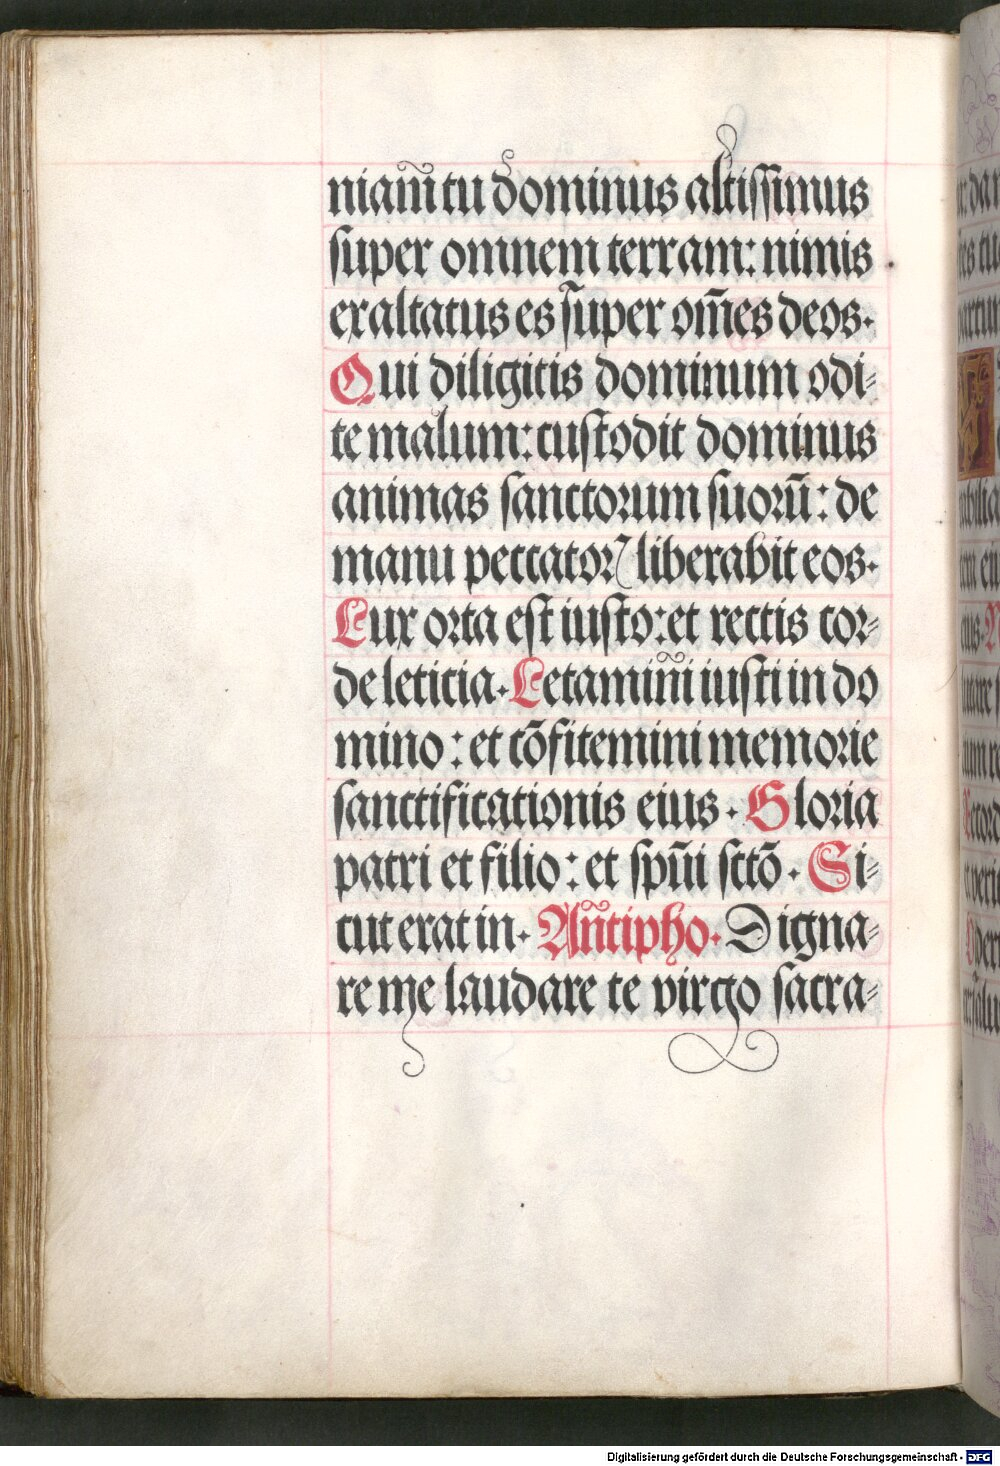 niam̄ tu dominus altissimus
super omnem terram: nimis
exaltatus es super om̄es deos.
Qui diligitis dominum odi⸗
te malum: custodit dominus
animas sanctorum suorū: de
manu peccatoꝝ liberabit eos.
Lux orta est iusto: et rectis cor⸗
de leticia. Letamini iusti in do
mino: et cōfitemini memorie
sanctificationis eius. Gloria
patri et filio: et spūi sctō. Si⸗
cut erat in. An̄tipho. Digna⸗
re me laudare te virgo sacra⸗
Digitalisierung gefördert durch die Deutsche Forschungsgemeinschaft - DFG